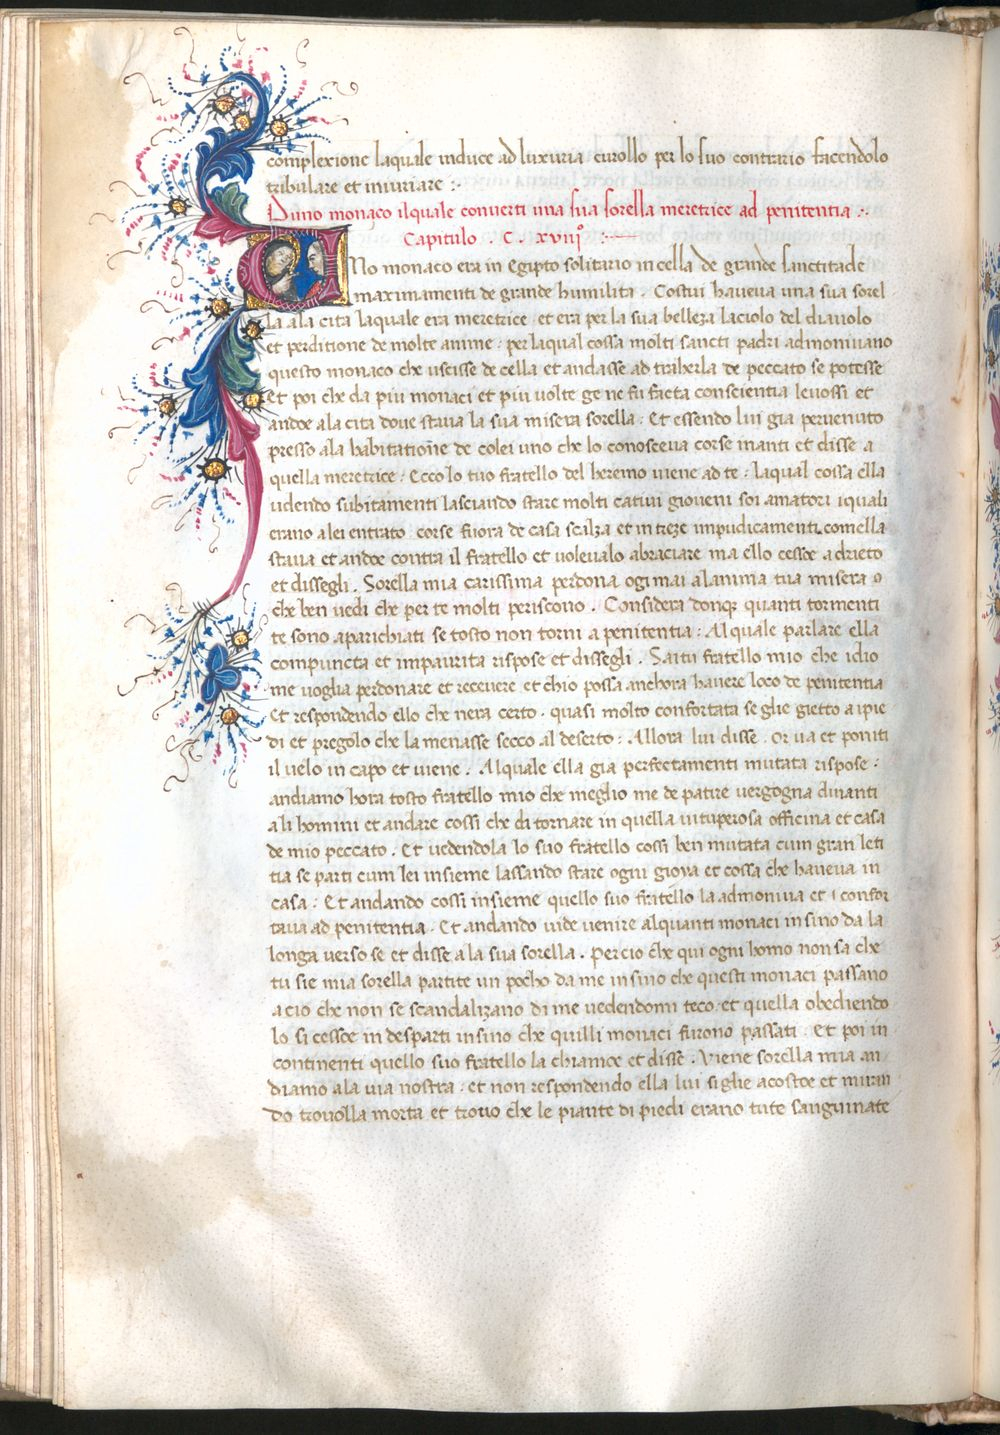 complexione laquale induce ad luxuria · curollo per lo suo contrario facendolo
tribulare et iniuriare :·
Duno monaco ilquale converti una sua sorella meretrice ad penitentia :·
Capitulo · C · xviiiº
No monaco era in Egipto solitario in cella de grande sanctitade
maximamenti de grande humilita · Costui haveva una sua sorel
la ala cita laquale era meretrice et era per la sua belleza laciolo del diavolo
et perditione de molte anime : per laqual cossa molti sancti padri admonivano
questo monaco che uscisse de cella et andasse ad traherla de peccato se potesse
Et poi che da piu monaci et piu volte ge ne fu facta conscientia levossi et
andoe ala cita dove stava la sua misera sorella : Et essendo lui gia pervenuto
presso ala habitatione de colei uno che lo conosceva corse inanti et disse a
quella meretrice : Ecco lo tuo fratello del heremo viene ad te : laqual cossa ella
udendo subitamenti lasciando stare molti cativi gioveni soi amatori iquali
erano a lei entrato corse fuora de casa scalza et in treze impudicamenti comella
stava et andoe contra il fratello et volevalo abraciare ma ello cessoe adrieto
et dissegli . Sorella mia carissima perdona ogi mai alanima tua misera o
che ben vedi che per te molti periscono . Considera donq; quanti tormenti
te sono aparichiati se tosto non torni a penitentia : Al quale parlare ella
compuncta et impaurita rispose et dissegli . Saitu fratello mio che idio
me voglia perdonare et recevere et chio possa anchora havere loco de penitentia
Et respondendo ello che nera certo · quasi molto confortata se glie gietto a ipie
di et pregolo che la menasse secco al deserto : Allora lui disse . or va et poniti
il velo in capo et viene . Al quale ella gia perfectamenti mutata rispose :
andiamo hora tosto fratello mio che meglio me de patire vergogna dinanti
ali homini et andare cossi che di tornare in quella vituperosa officina et casa
de mio peccato . Et vedendola lo suo fratello cossi ben mutata cum gran leti
tia se parti cum lei insieme lassando stare ogni giova et cossa che haveva in
casa : Et andando cossi insieme quello suo fratello la admoniva et confor
tava ad penitentia . Et andando vide venire alquanti monaci insino da la
longa verso se et disse a la sua sorella . Per cio che qui ogni homo non sa che
tu sie mia sorella partite un pocho da me insino che questi monaci passano
a cio che non se scandalizano di me vedendomi teco et quella obediendo
lo si cessoe in desparti insino che quilli monaci furono passati . Et poi in
continenti quello suo fratello la chiamoe et disse . Viene sorella mia an
diamo ala via nostra : et non respondendo ella lui si glie acostoe et miran
do trovolla morta et trovo che le piante di piedi erano tute sanguinate